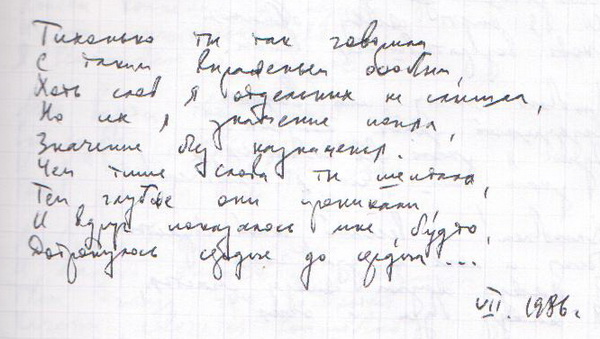 Тихонько ты так говорила
С таким выраженьем любви,
Хоть слов я отдельных не слышал,
Но их я значение понял,
Значение без назначенья.
Чем тише слова ты шептала,
Тем глубже они проникали,
И вдруг показалось мне, будто,
Дотронулось сердце до сердца ...
VII. 1986.